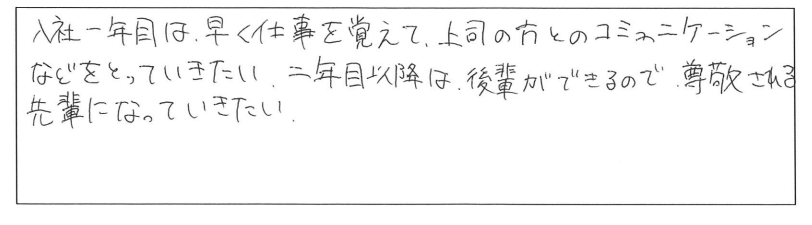 入社一年目は、早く仕事を覚えて、上司の方とのコミュニケーション
などをとっていきたい。二年目以降は、後輩ができるので、尊敬される
先輩になっていきたい。